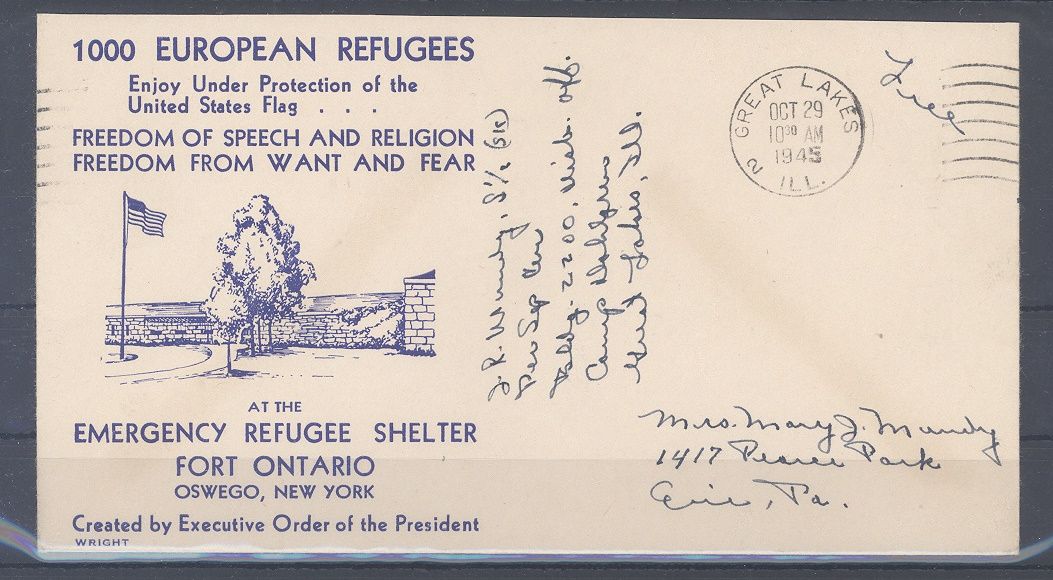 1000 EUROPEAN REFUGEES
Enjoy Under Protection of the
United States Flag . . .
FREEDOM OF SPEECH AND RELIGION
FREEDOM FROM WANT AND FEAR
AT THE
EMERGENCY REFUGEE SHELTER
FORT ONTARIO
OSWEGO, NEW YORK
Created by Executive Order of the President
WRIGHT
J. R. Mundy, S 1/c
Per Sep Cen
Bldg. 2200,
Camp
Great Lakes, Ill.
GREAT LAKES
OCT 29
10 30 AM
1945
2 ILL.
Free
Mrs. Mary J. Mundy
1417 Pearce Park
Erie, Pa.